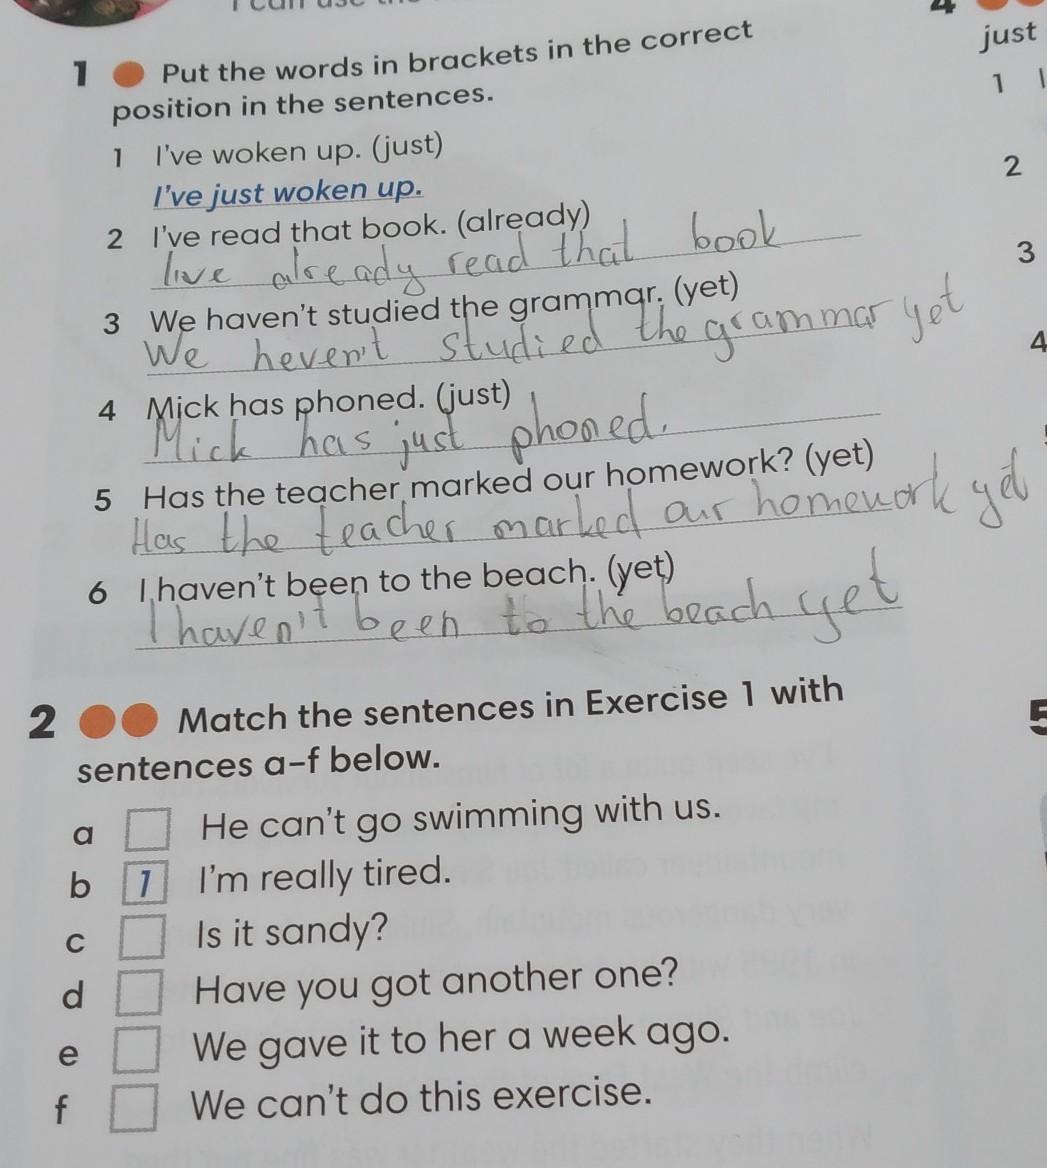 1 Put the words in brackets in the correct
position in the sentences.
1 I've woken up. (just)
I've just woken up.
2 I've read that book. (already)
I've already read that book
3 We haven't studied the grammar. (yet)
We heven't studied the grammar yet
4 Mick has phoned. (just)
Mick has just phoned.
5 Has the teacher marked our homework? (yet)
Has the teacher marked our homework yet
6 I haven't been to the beach. (yet)
I haven't been to the beach yet
2 Match the sentences in Exercise 1 with
sentences a–f below.
a He can't go swimming with us.
b 1 I'm really tired.
c Is it sandy?
d Have you got another one?
e We gave it to her a week ago.
f We can't do this exercise.
4
just
1
2
3
4
5